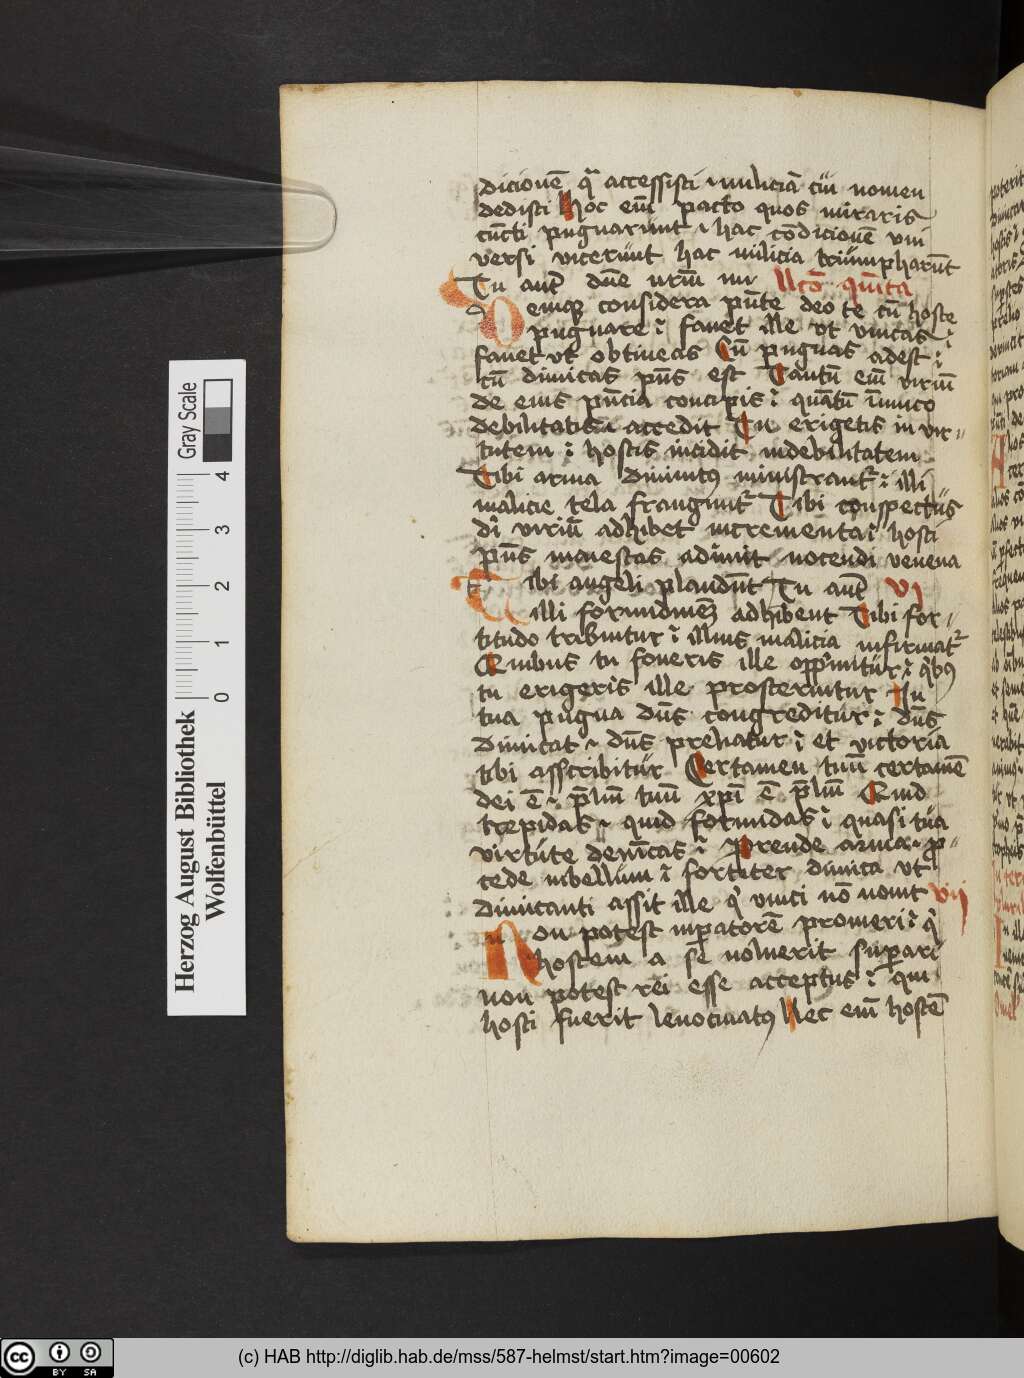 dicionē qᷓ accessisti ⁊ miliciā cui nomen
dedisti Hoc eīm pacto quos miraris
cūcti pugnarunt ⁊ hac cōdicionē vni
versi vicerunt hac milicia triumpharūt
Tu autē dn̄e nrīm mī llcō quīta
Denique considera pn̄te deo te cū hoste
pugnare ⁊ fauet ille vt vincas ⁊
fauet vt obtineas Cū pugnas adest ⁊
cū dimicas pn̄s est Tantū eīm viriū
de eius pn̄cia concipis ⁊ quātū inimico
debilitatis accedit Tu erigeris in vir-
tutem ⁊ hostis incidit in debilitatem
Tibi arma diuinitus ministrant᷑ ⁊ illi
malicie tela frangunt᷑ Tibi conspectus
di viriū adhibet incrementa ⁊ hosti
pn̄s maiestas adimit nocendi venena
Tibi angeli plaudūt Tu aūt VI
illi formidinem adhibent Tibi for-
titudo tribuitur ⁊ illius malicia infirmat᷑
Quibus tu foueris ille opprimitur ⁊ qͥbus
tu erigeris ille prosternitur In
tua pugna dn̄s congreditur ⁊ dn̄s
dimicat ⁊ dn̄s preliatur ⁊ et victoria
tibi asscribitur Certamen tuū certamē
dei ē ⁊ p̄liū tuū xp̄i ē p̄liū Quid
trepidas ⁊ quid formidas ⁊ quasi tua
virtute demīcas ⁊ prende arma ⁊ p-
cede in bellum ⁊ fortiter dimica vt
dimicanti assit ille qͥ vinci nō nouit vij
Non potest inpatorē promeri ⁊ qͥ
hostem a se noluerit superari
non potest rei esse acceptus ⁊ qui
hosti fuerit lenocinatus Nec eīm hostē
Gray Scale
0 1 2 3 4
Herzog August Bibliothek
Wolfenbüttel
cc BY SA
(c) HAB http://diglib.hab.de/mss/587-helmst/start.htm?image=00602